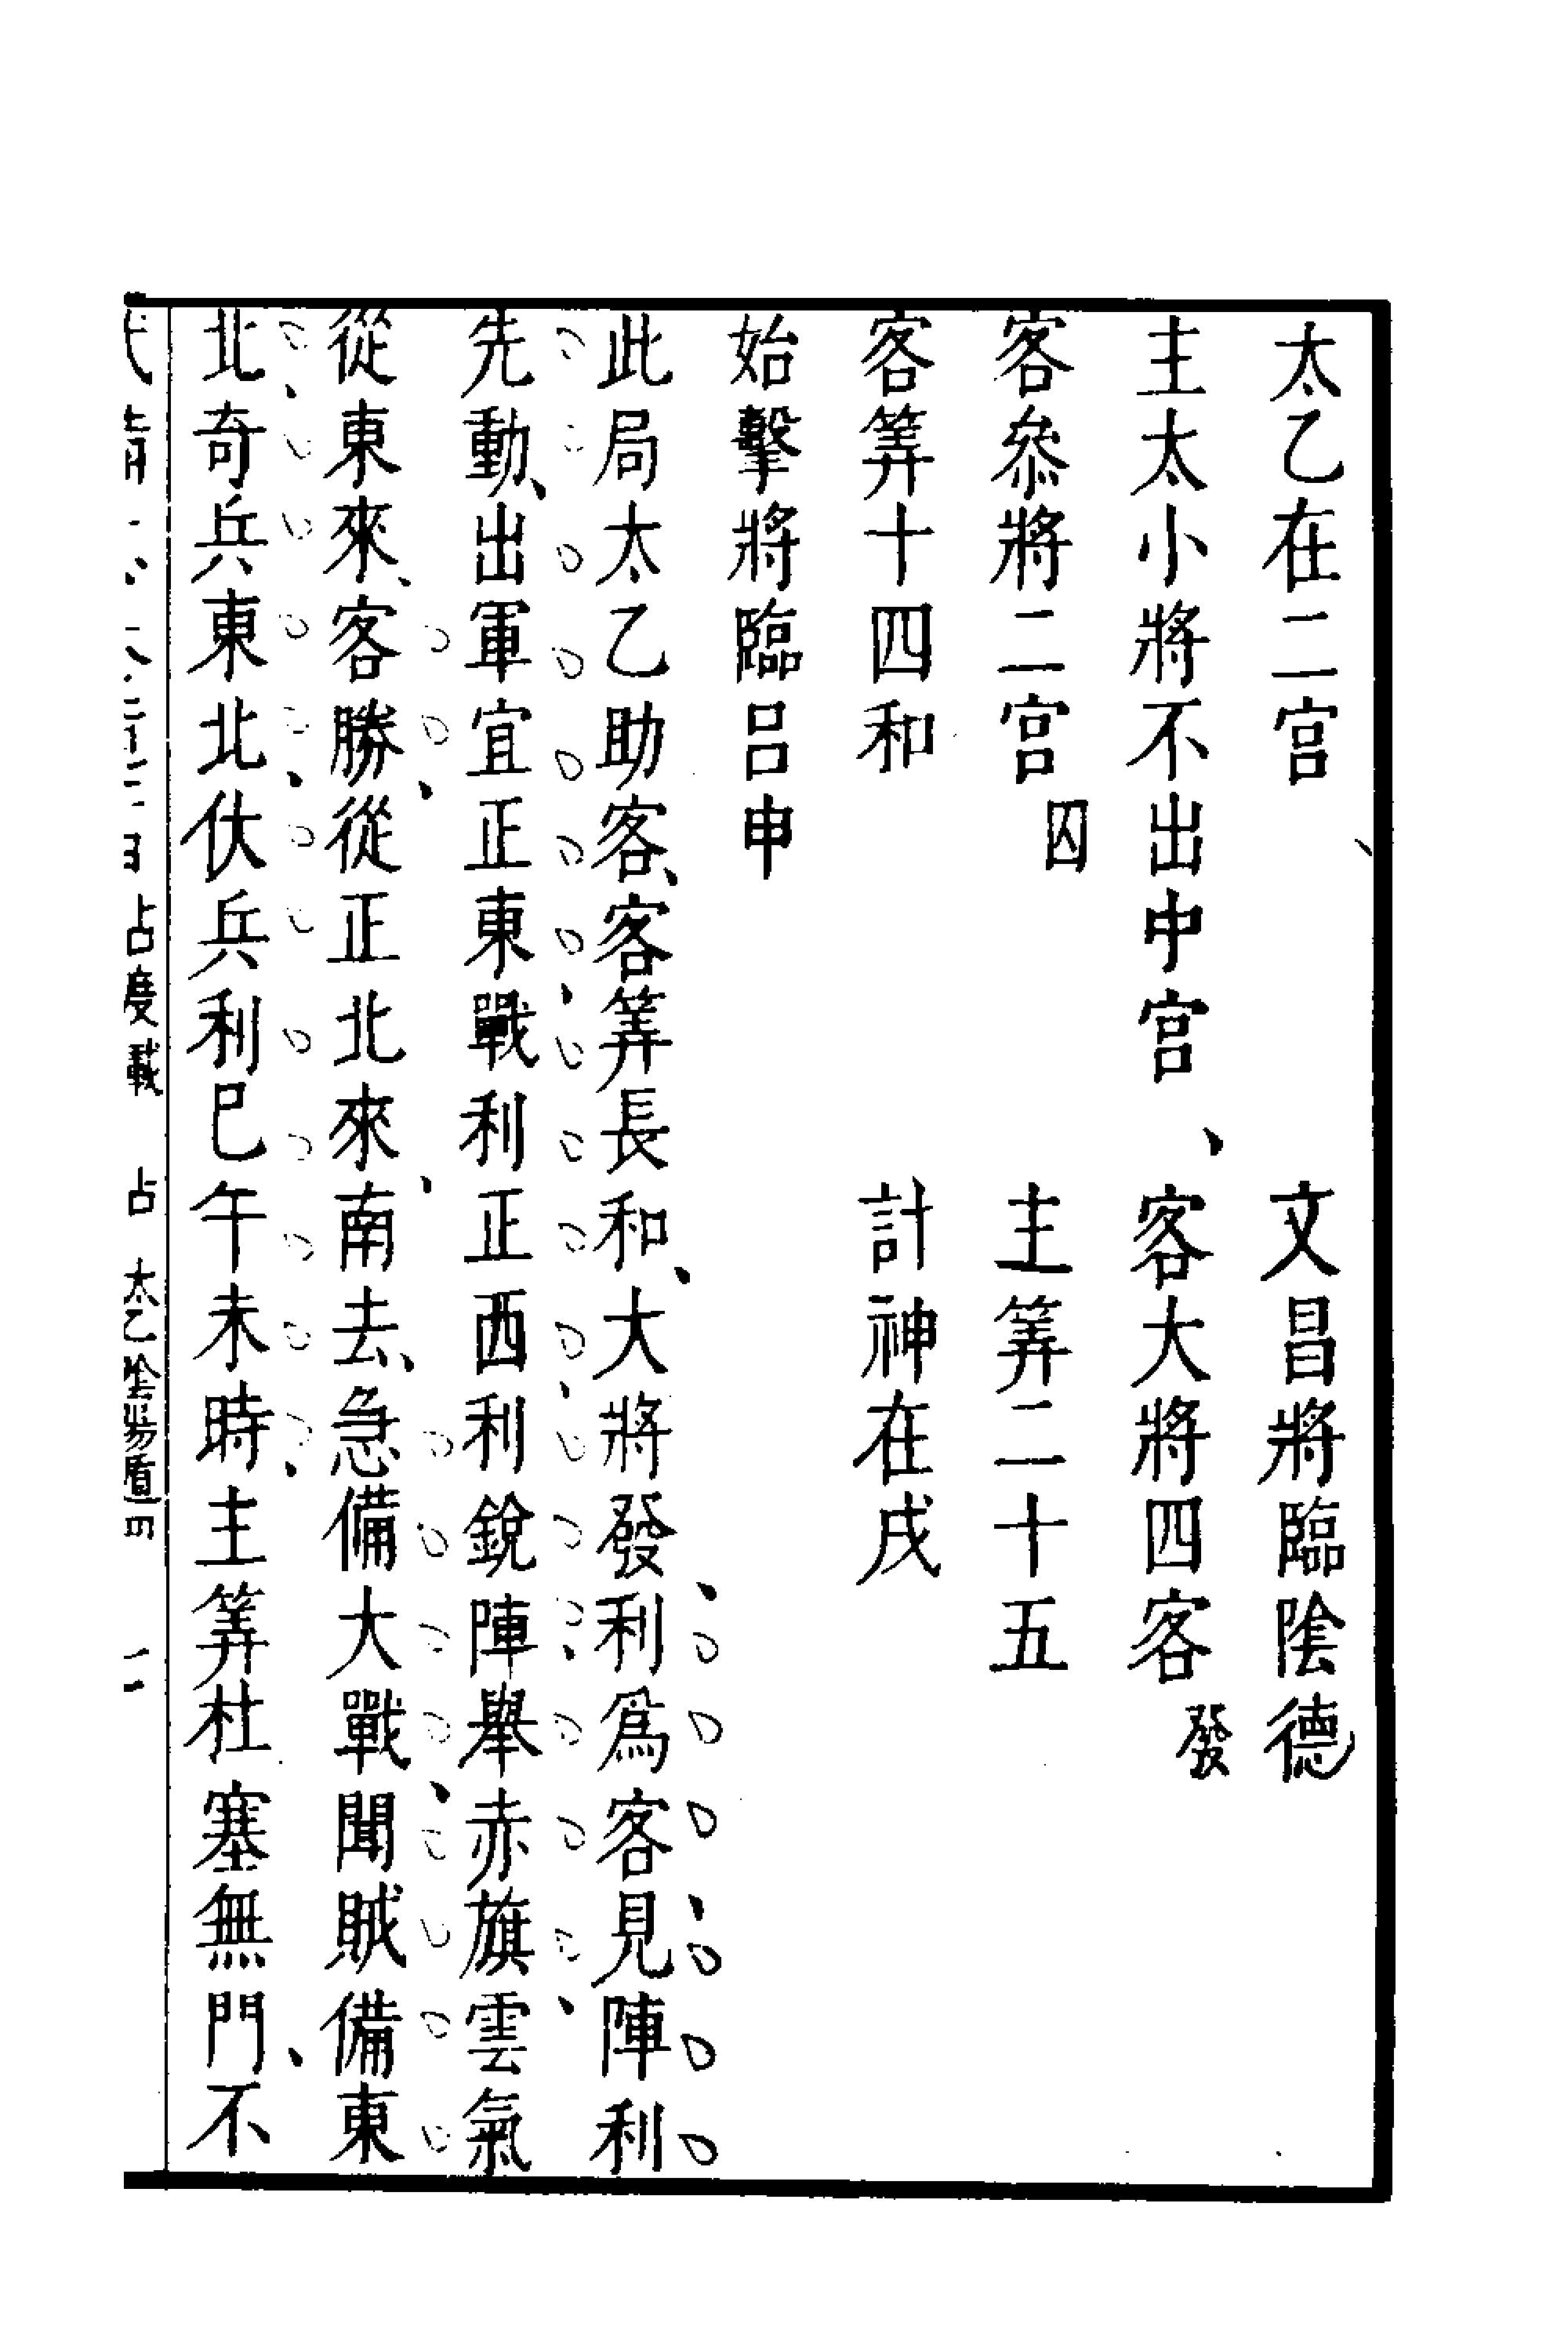 太乙在二宫 文昌將臨陰德
主太小將不出中宫、客大將四客發
客叅將二宫囚 主筭二十五
客筭十四和 計神在戌
始擊將臨吕申
此局太乙助客、客筭長和、大將發、利爲客、見陣利
先動、出軍宜正東、戰利正西、利銳陣、舉赤旗、雲氣
從東來、客勝、從正北來、南去、急備大戰、聞賊備東
北、奇兵東北、伏兵利巳午未時、主筭杜塞無門、不
占度載 占 太乙陰陽遁四